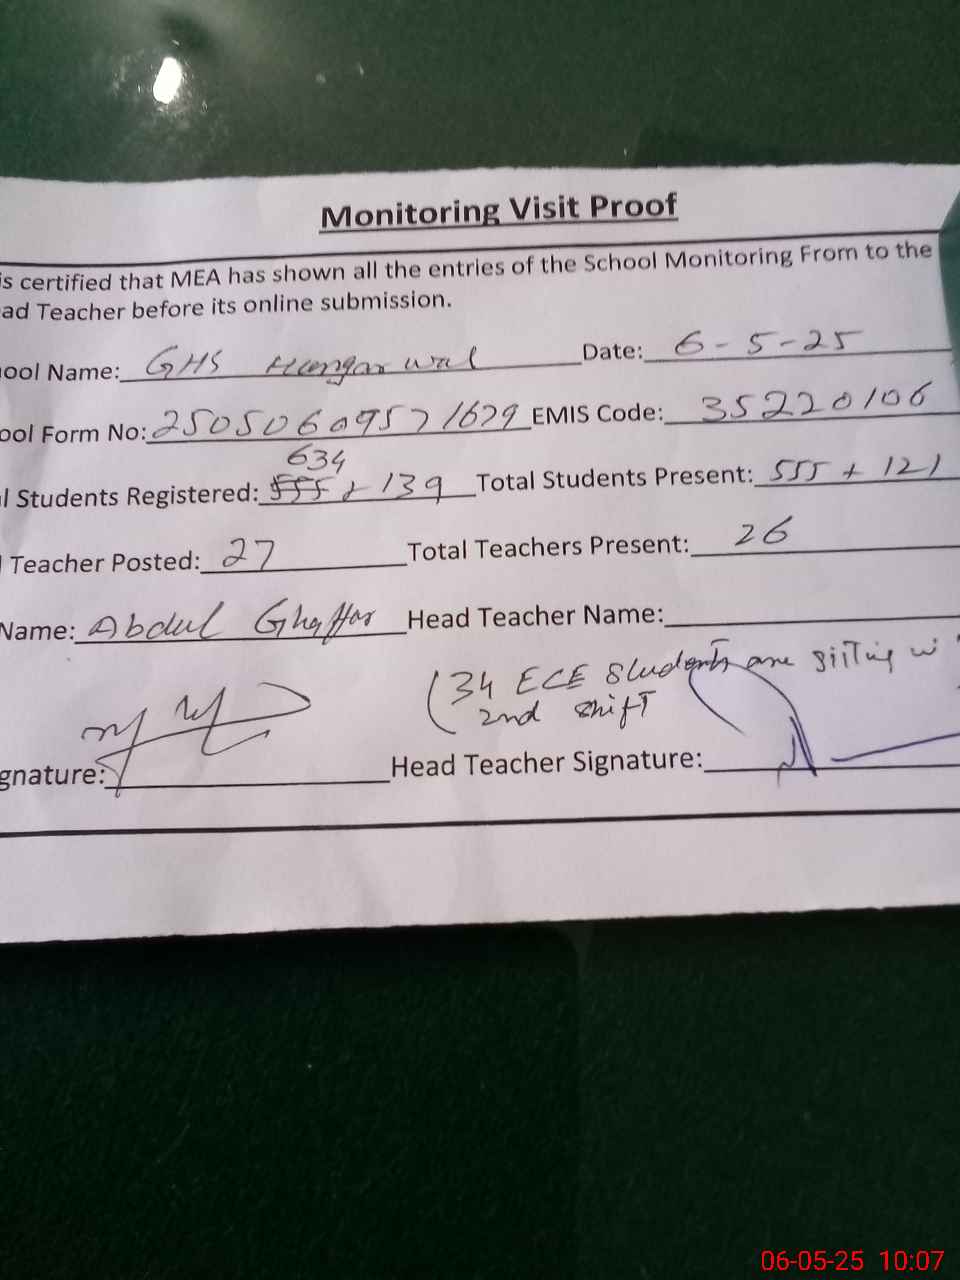 Monitoring Visit Proof
is certified that MEA has shown all the entries of the School Monitoring From to the
ad Teacher before its online submission.
ool Name: GHS Date: 6-5-25
ool Form No: 25050609571629 EMIS Code: 35220106
634
l Students Registered: 555 + 139 Total Students Present: 555 + 121
Teacher Posted: 27 Total Teachers Present: 26
Name: Abdul Ghaffar Head Teacher Name:
(34 ECE Students are sitting w
2nd shift
gnature: Head Teacher Signature:
06-05-25 10:07